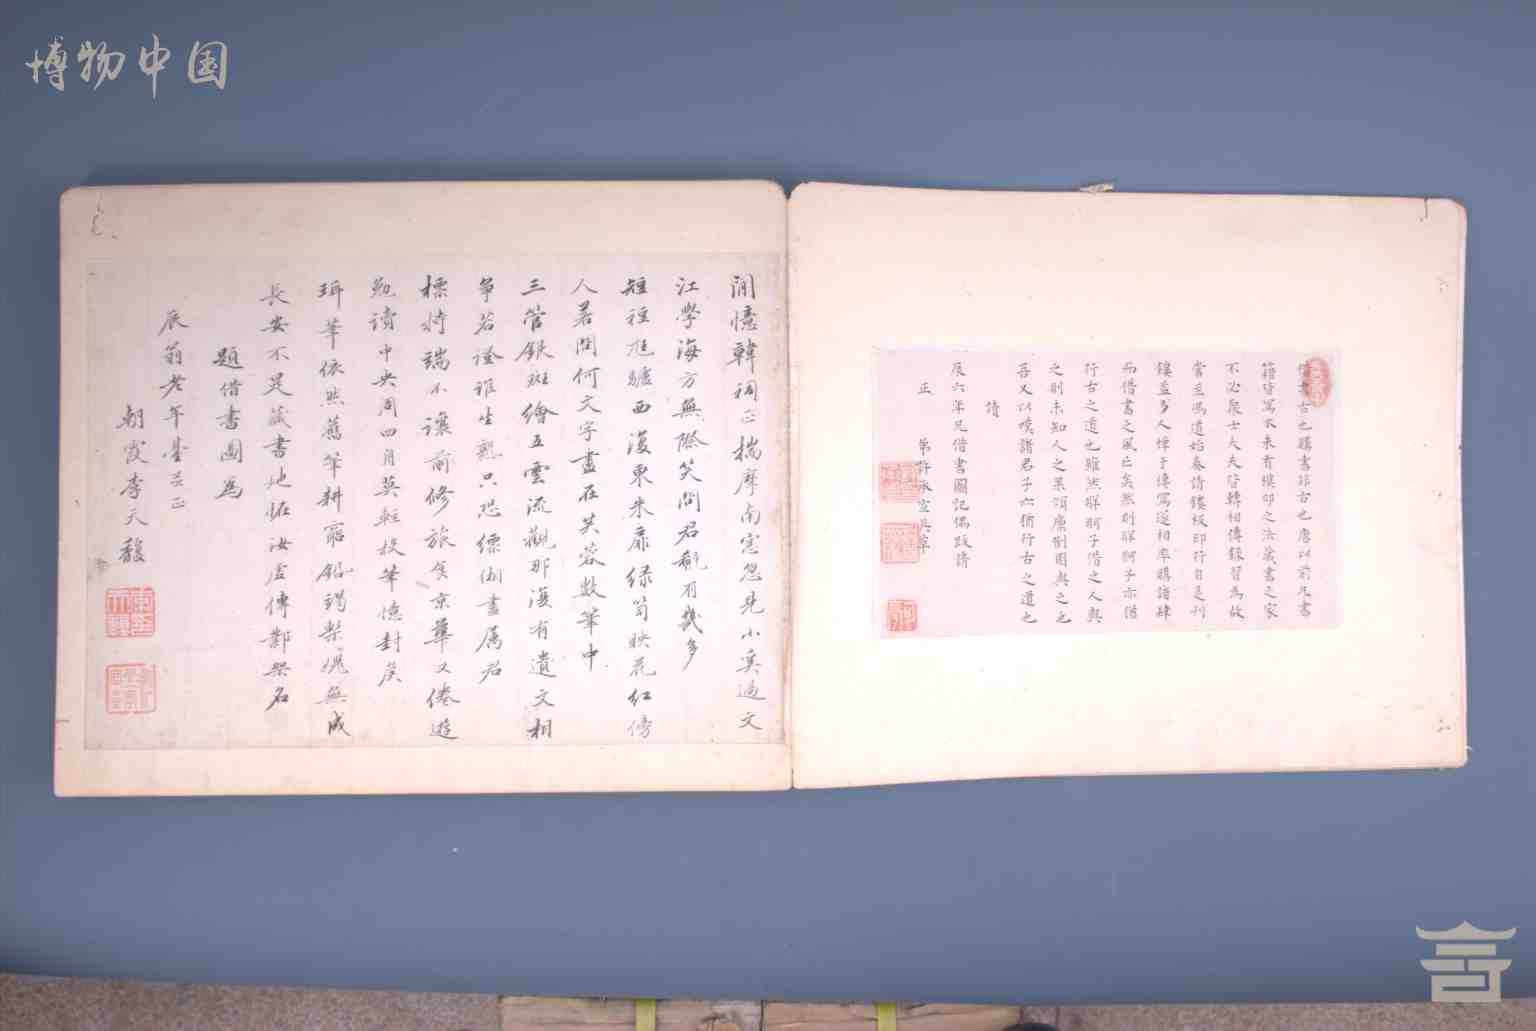 博物中国
借書古也購書非古也唐以前凡書
籍皆寫本未有摸印之法藏書之家
不必聚士大夫皆轉相傳錄習為故
常至馮道始奏請鏤板印行自是刊
鏤益多人憚于傳寫遂相率購諸肆
而借書之風亡矣然則眸舸子亦借
行古之道也雖然眸舸子借之人與
之則未知人之果傾廩割囷與之也
吾又以嘆諸君子亦猶行古之道也
辰六年兄借書圖記偶跋請
正
弟許承宣具草
澗憶韓祠正揣摩南窓忽見小奚過文
江學海方無際笑問君龕有幾多
短種尪驢西復東朱扉綠筍映花紅傍
人若問何文字盡在芙蓉數篳中
三管銀斑繪五雲流觀那復有遺文相
爭若證誰生熟只恐縹緗盡屬君
標特端不讓前修旅食京華又倦遊
勉讀中央周四角莫輕投筆憶封侯
珥筆依然舊筆耕露鉛蠲槧媿無成
長安不是藏書地怊汝虛傳鄴架名
題借書圖為
辰翁老年臺並正
朝霞李天馥